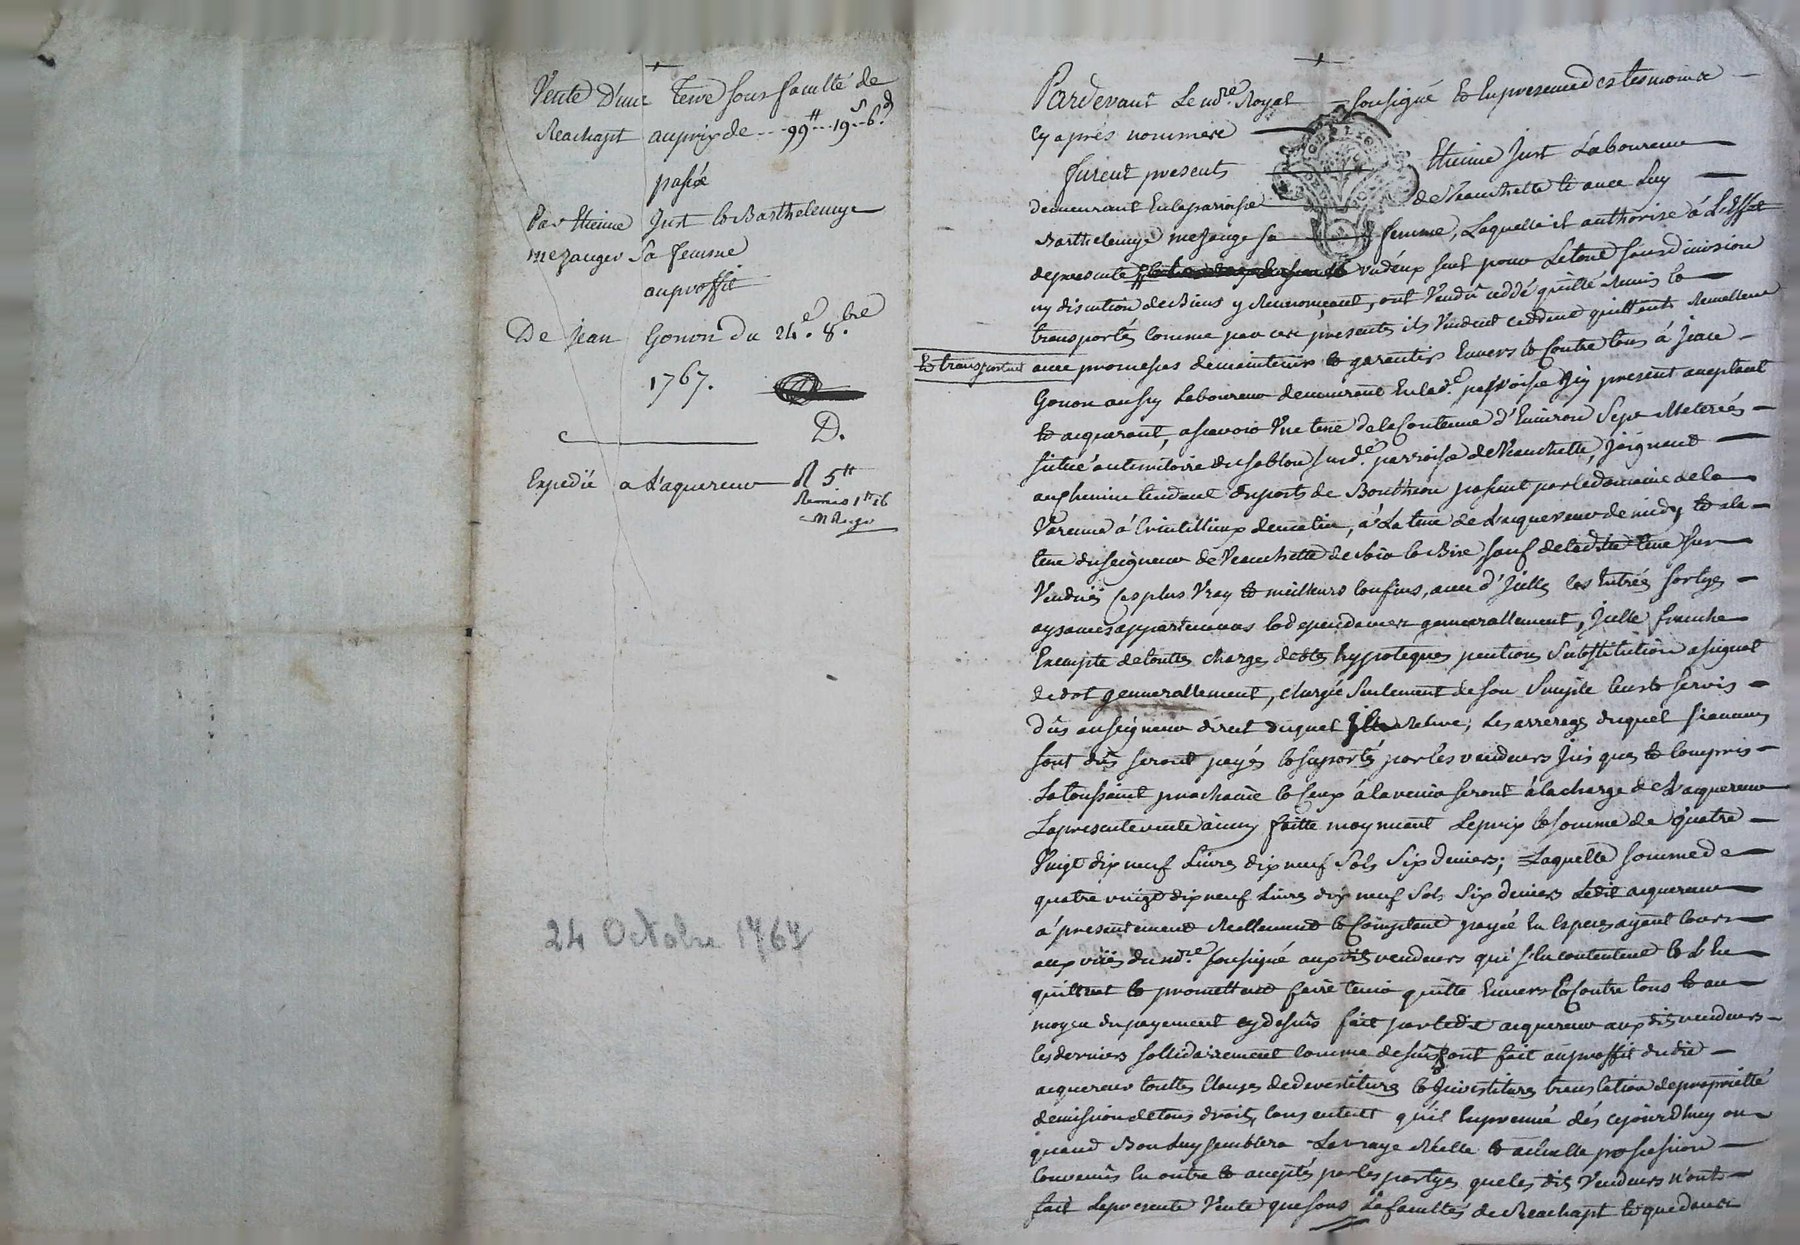 Vente D'une terre sous faculté de
Reachapt au prix de --- 99# -- 19s -- 6d
passée
Par Etienne Just et Barthelemye
mezanger Sa femme
au proffit
De Jean Gonon du 24e. 8.bre
1767.
D.
Expedié a L'aquereur R 5#
24 Octobre 1767
Pardevant Le no.re Royal sousigné et En presence des temoins
cy apres nommées
furent presents Etienne Just Laboureur
demeurant En la parroisse de Veauchette et avec Luy
Barthelemye mezange sa femme, Laquelle il authorise à L'Effet
des presente un d'eux seul pour Le tout sans division
ny discution de Biens y Renonceant, ont Vendu ceddé quitté Remis et
transportés comme par ces presents ils Vendent ceddent quittent Remettent
et transportent avec promesses de maintenir et garentir Envers et Contre tous à Jean
Gonon aussy Laboureur demeurant En lad.e parroisse Icy present aceptant
et aquerant, a scavoir Une terre de la Contenue d'Environ Sept Meterées
situé au territoire du sablon susd.e parroisse de Veauchette, Joignant
au chemin tendant du port de Bouthéon passant par le domaine de la
Varenne à matin, à La terre de L'acquereur de midy et a la
terre du seigneur de Veauchette de soir et Bize sauf de ladite terre sus
Vendüe ses plus Vray et meilleurs confins, avec d'Jcelle les Entrées sortyes
aysances appartenances et dependances generallement, Jcelle franche
Exempte de touttes charges debtes hypoteques pentions Substitution assignat
de dot generallement, chargée Seulement de son Simple cens et servis
dûs au seigneur direct duquel Elle Releve; Les arrerages duquel si aucuns
sont dûs seront payés et suportés par les vendeurs Jus ques et compris
La toussaint prochaine et Ceux à l'avenir seront à la charge de L'acquereur
La presente vente ainsy faitte moyennant Le prix et somme de quatre
Vingt dix neuf Livres dix neuf Sols Six deniers; Laquelle somme de
quatre vingt dix neuf Livres dix neuf Sols Six deniers Ledit acquereur
à presentement Reellement et Comptant payée En Especes ayant cours
aux vües du no.re soussigné aux dits vendeurs qui s'En contentent et L'En
quittent et promettent faire tenir quitte Envers et Contre tous et au
moyen du payement cy dessus fait par ledit acquereur aux dits vendeurs
les derniers sollidairement comme dessus font fait au proffit dudit
acquereur touttes Clauses de devestitures et Jnvestitures translation de proprietté
demission de tous droits, consentent qu'il En prenne dés ce jourd'huy ou
quand Bon Luy semblera La vraye Réelle et actuelle possession
Convenûs En outre et aceptés par les partyes que les dits Vendeurs n'ont
fait La presente Vente que sous La facultés de Reachapt et que dans